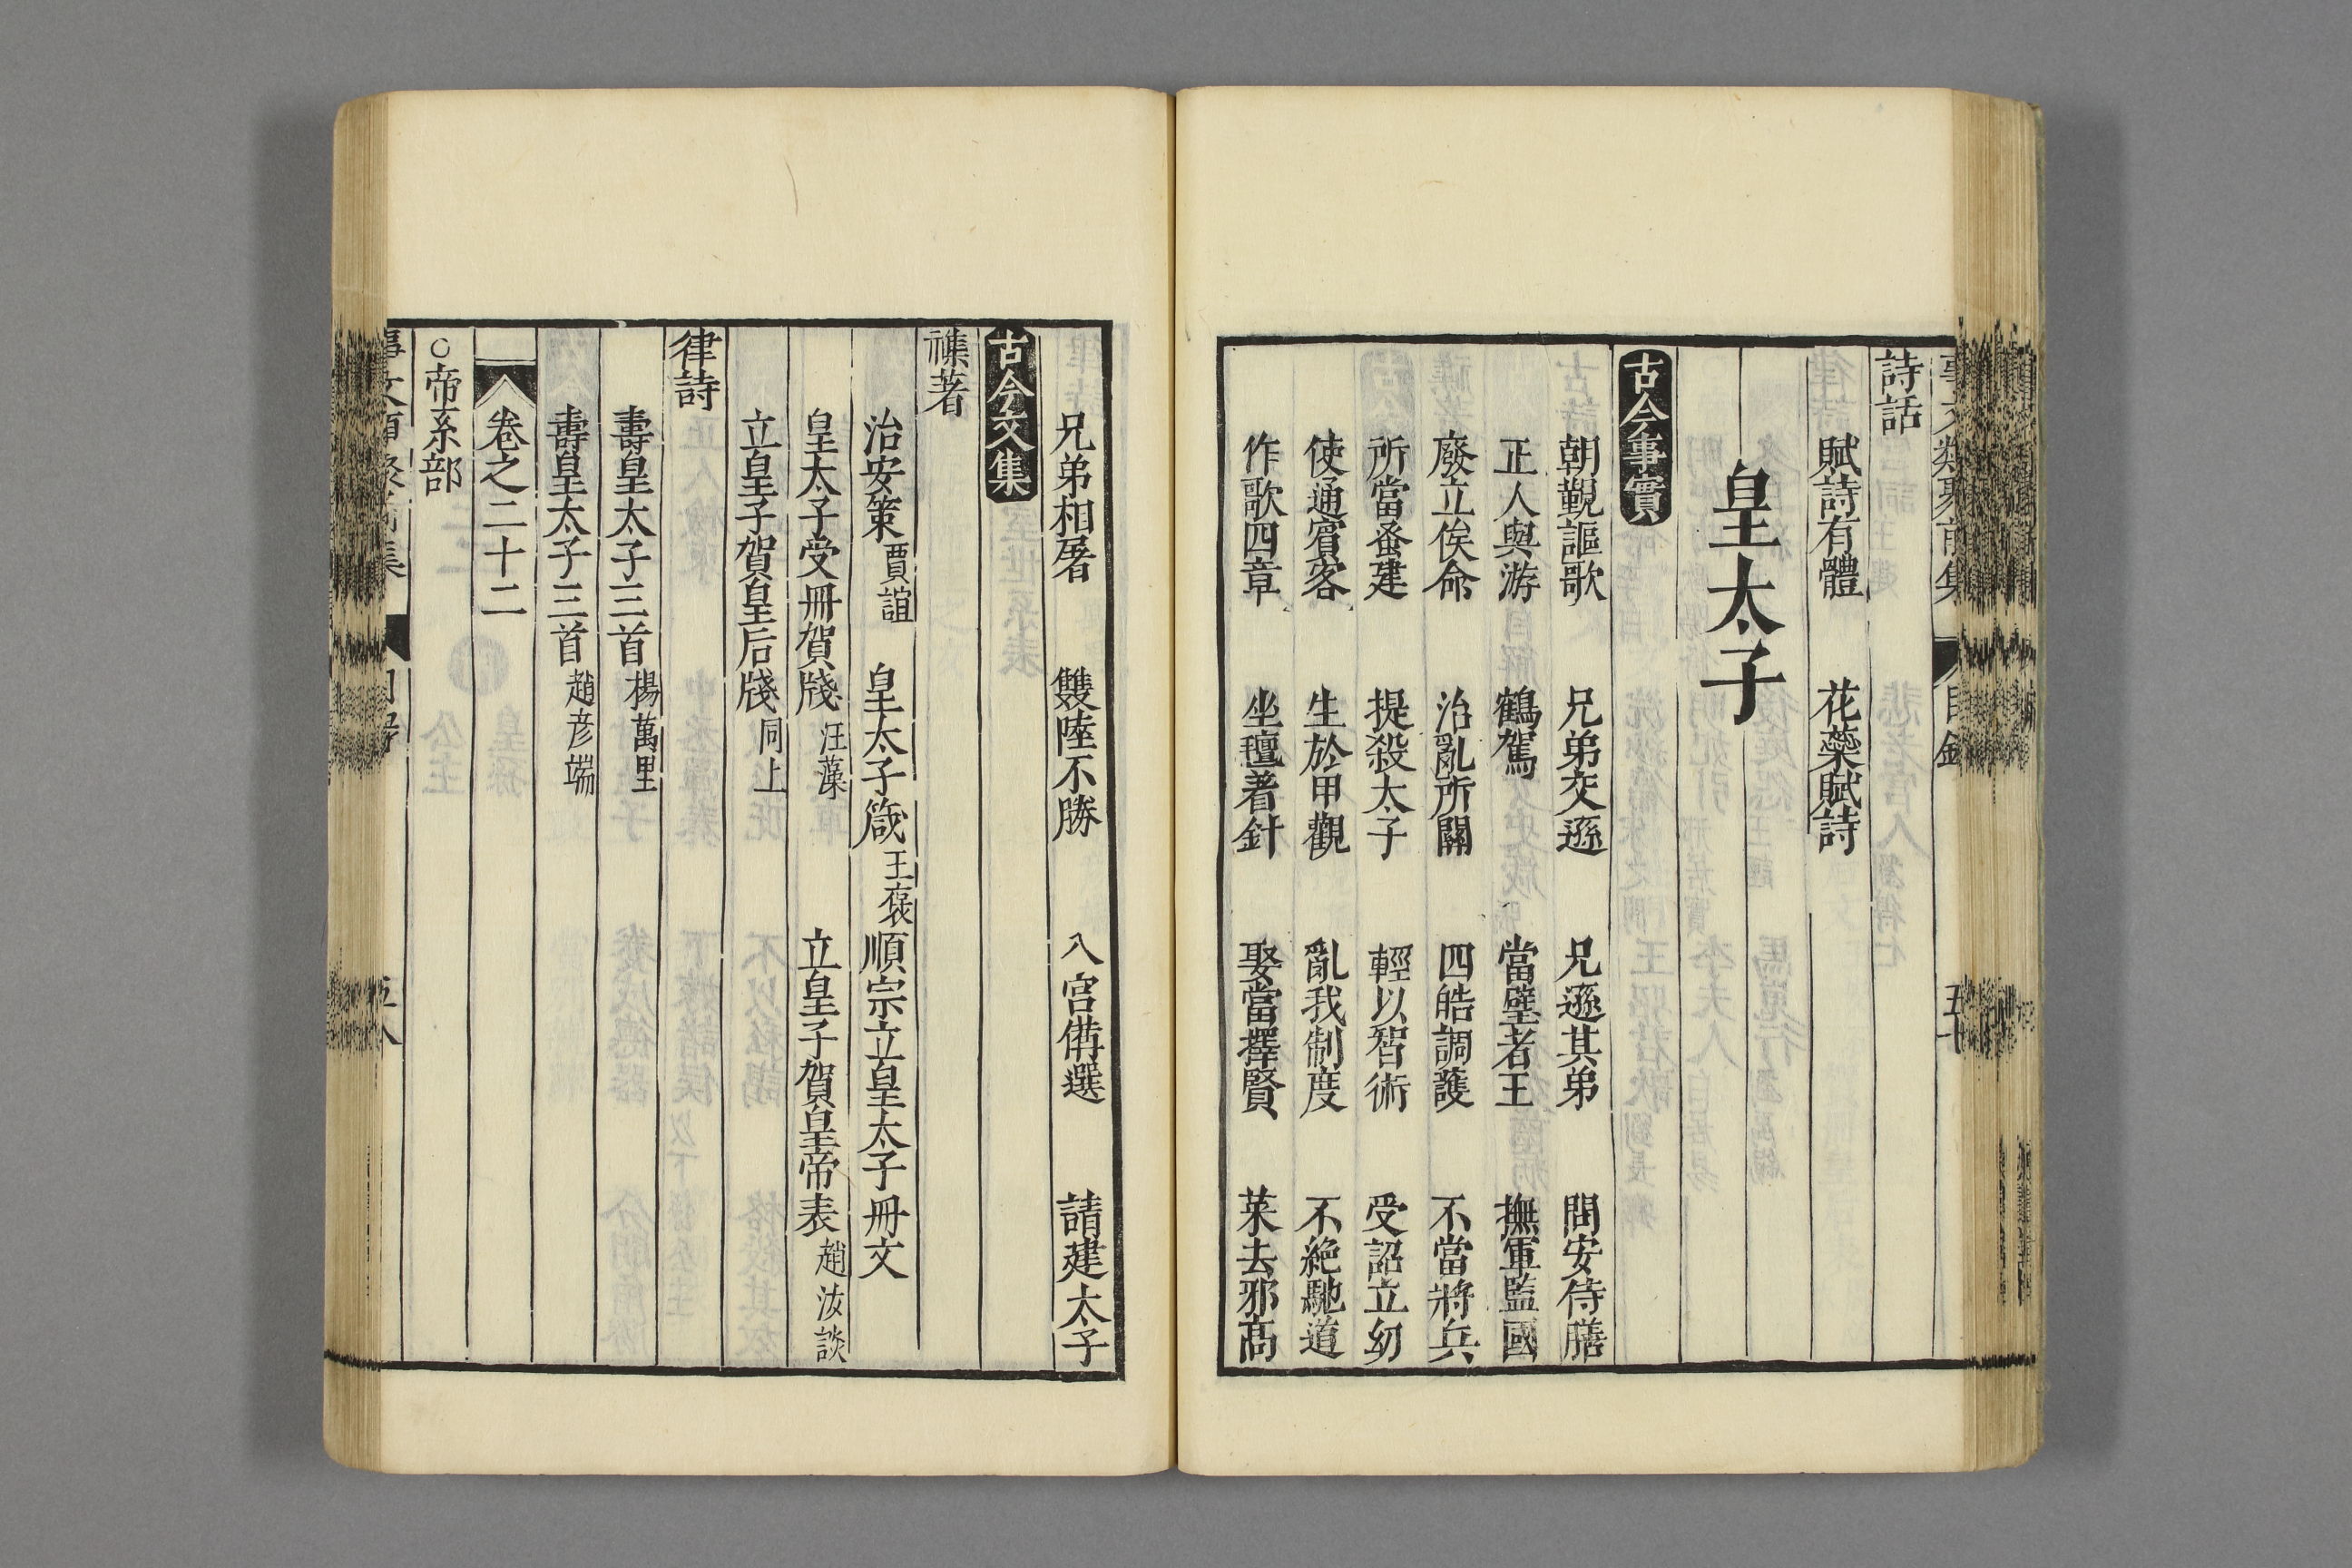 事文類聚前集 目錄 五十
詩話
賦詩有體 花藥賦詩
皇太子
古今事實
朝觀謳歌 兄弟交遜 兄遜其弟 問安侍膳
正人與游 鶴駕 當璧者王 撫軍監國
廢立俟命 治亂所關 四皓調護 不當將兵
所當蚤建 提殺太子 輕以智術 受詔立幼
使通賓客 生於甲觀 亂我制度 不絶馳道
作歌四章 坐氊著針 娶當擇賢 菜去邪蒿
兄弟相屠 雙陸不勝 八宮備選 請建太子
古今文集
襍著
治安策 賈誼 皇太子箴 王褒 順宗立皇太子冊文
皇太子受冊賀牋 汪藻 立皇子賀皇帝表 趙汝談
立皇子賀皇后牋 同上
律詩
壽皇太子三首 楊萬里
壽皇太子三首 趙彦端
卷之二十二
○帝系部